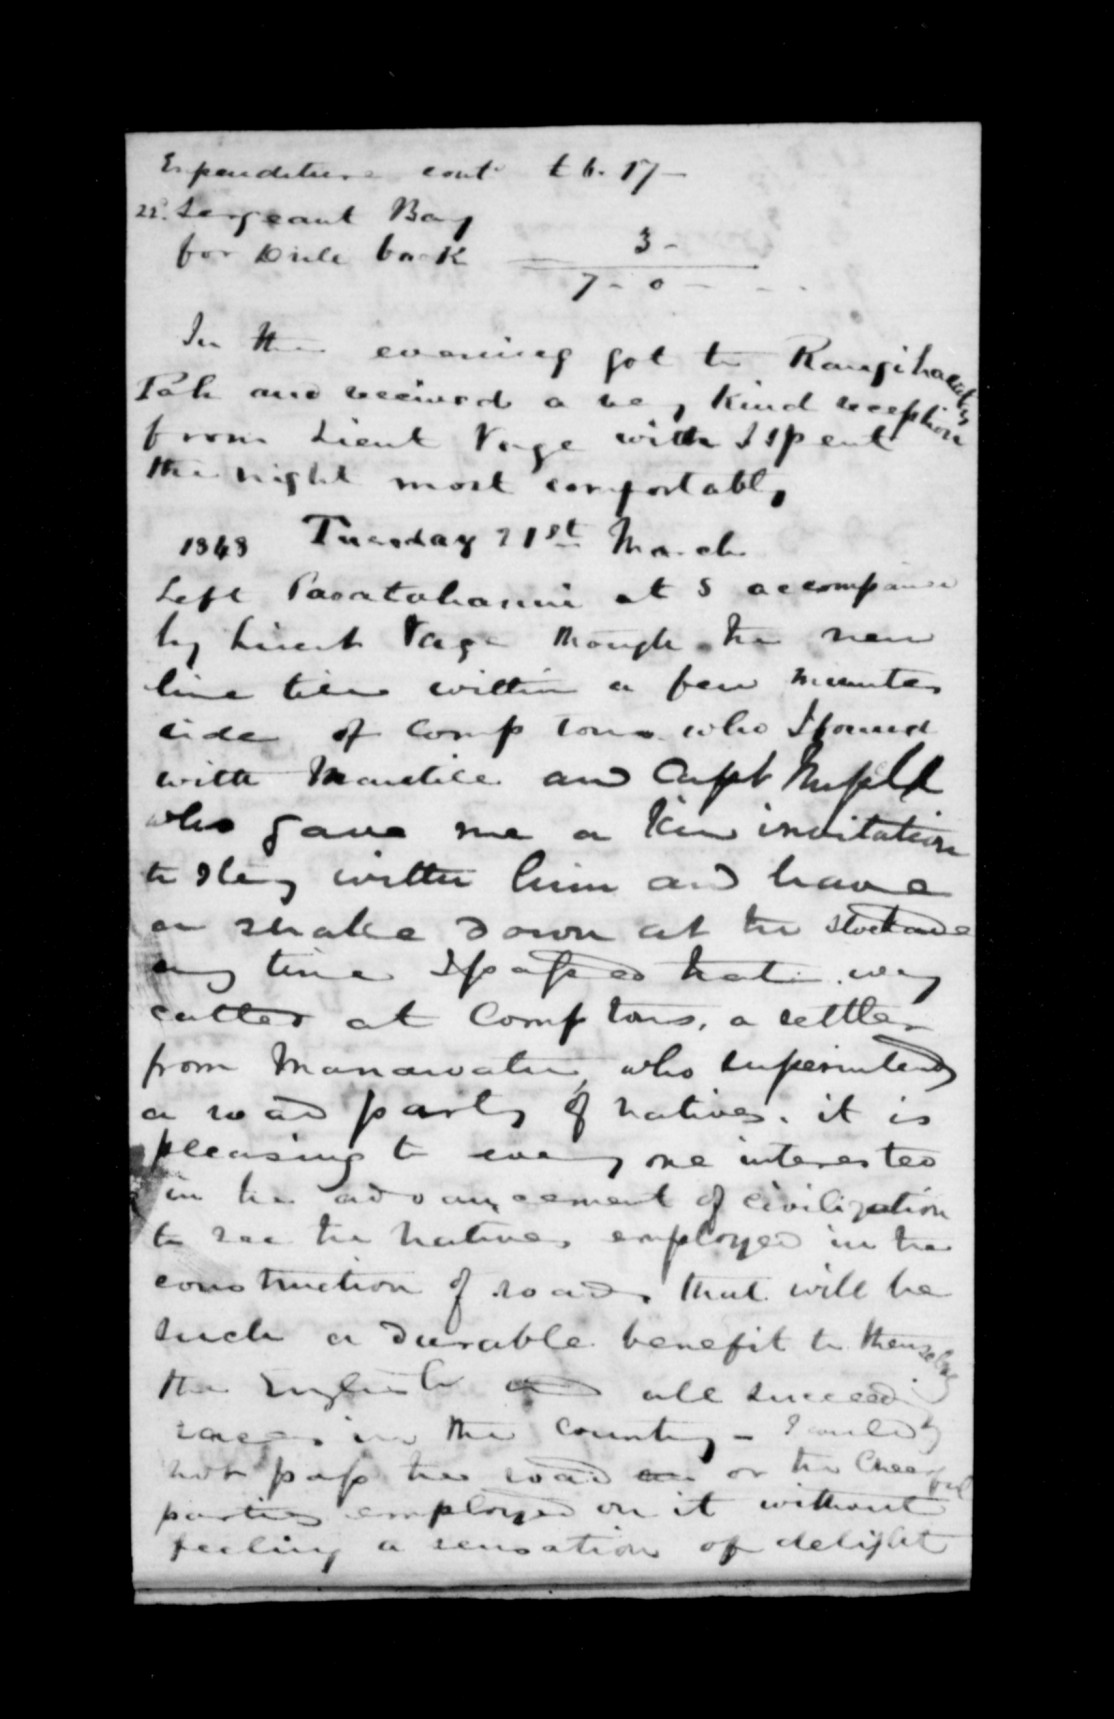 Expenditure cont £6. 17 -
22. Sergeant Bay
for Drill book 3 -
7 - 0 -
In the evening got to Rangihaeatas
Pah and received a very kind reception
from Lieut Page with I spent
the night most comfortably
1848 Tuesday 21st March
Left Pauatahanui at 8 accompanied
by Lieut Page through the new
line within a few minutes
ride of Comptons who I found
with and Capt
who gave me a kind invitation
to stay with him and have
a shake down at the stockade
any time I passed that way
called at Comptons, a settler
from Manawatu, who superintends
a road party of natives. it is
pleasing to every one interested
in the advancement of civilization
to see the natives employed in the
construction of roads that will be
such a durable benefit to themselves
the English and all succeeding
races in the country - I could
not pass the road or the cheerful
parties employed on it without
feeling a sensation of delight